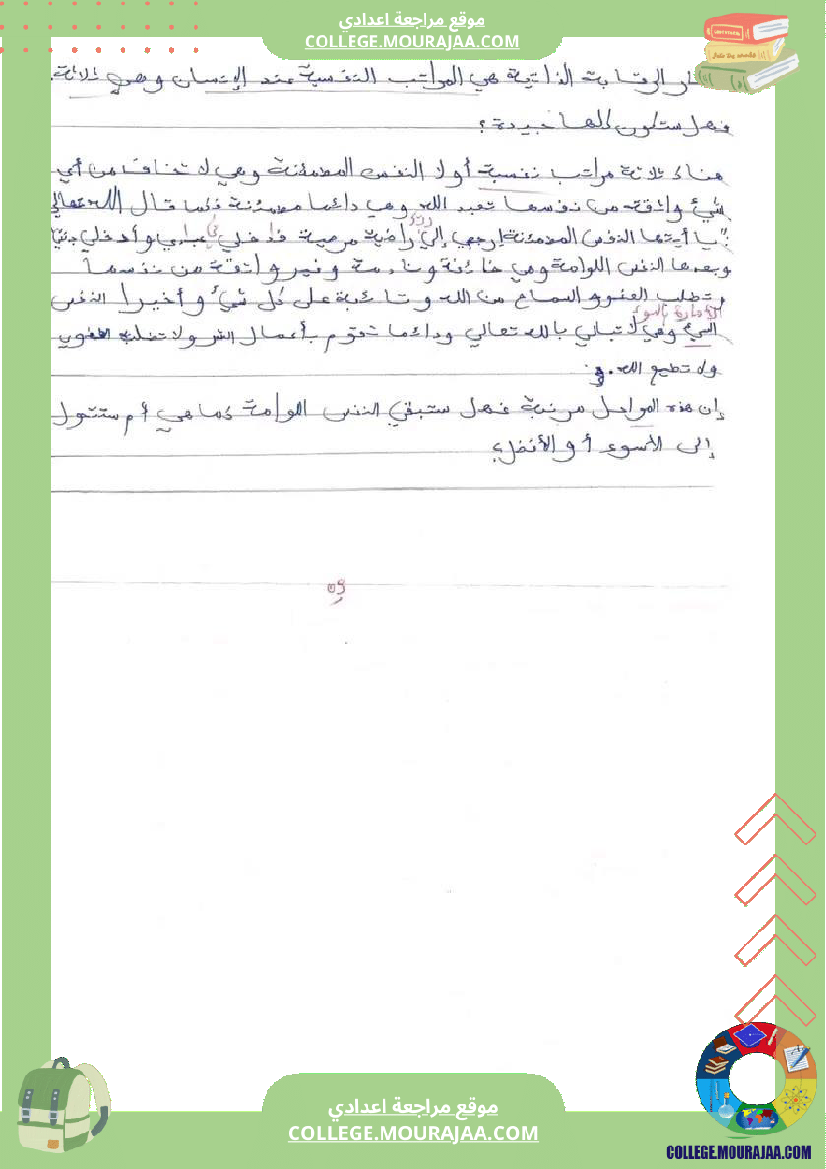 موقع مراجعة اعدادي
COLLEGE.MOURAJAA.COM
الرقابة الذاتية هي المراتب النفسية عند الإنسان وهي ثلاثة.
فهل ستكون كلها جيدة؟
هناك ثلاثة مراتب نفسية أولا النفس المطمئنة وهي لا تخاف من أي
شيء واثقة من نفسها تعبد الله وهي دائما مطمئنة كما قال الله تعالى
"يا أيتها النفس المطمئنة ارجعي إلى راضية مرضية فدخلي عبادي وأدخلي جنتي
ربك
في
وبعدها النفس اللوامة وهي خائفة ونادمة وغير واثقة من نفسها
وتطلب العفو و السماح من الله و تائبة على كل شيء و أخيرا النفس
الأمارة بالسوء
السيء وهي لا تبالي بالله تعالى ودائما تقوم بأعمال الشر ولا تطلب العفو
ولا تطيع الله.
إن هذه المراحل مرتبة فهل ستبقى النفس اللوامة كما هي أم ستتحول
إلى الأسوء أو الأفضل؟
09
موقع مراجعة اعدادي
COLLEGE.MOURAJAA.COM
COLLEGE.MOURAJAA.COM